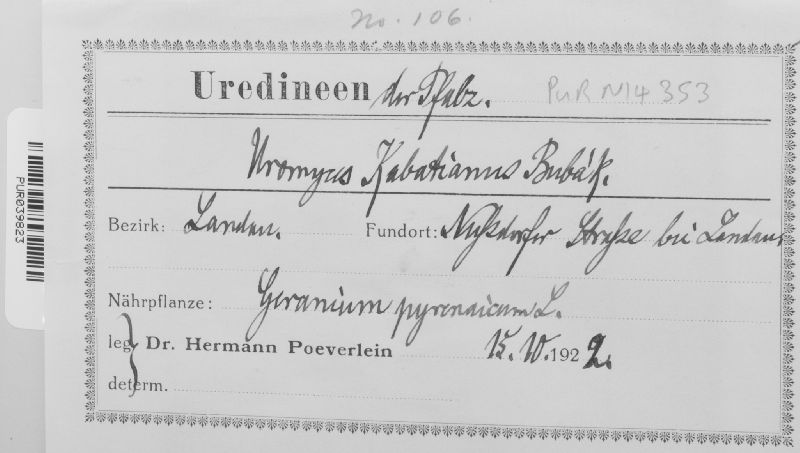 No. 106.
Uredineen der Pfalz. PUR N14353
Uromyces Kabatianus Bubák.
Bezirk: Landau. Fundort: Nußdorfer Straße bei Landau.
Nährpflanze: Geranium pyrenaicum L.
leg. Dr. Hermann Poeverlein 15. 10. 1922.
determ.
PUR039823